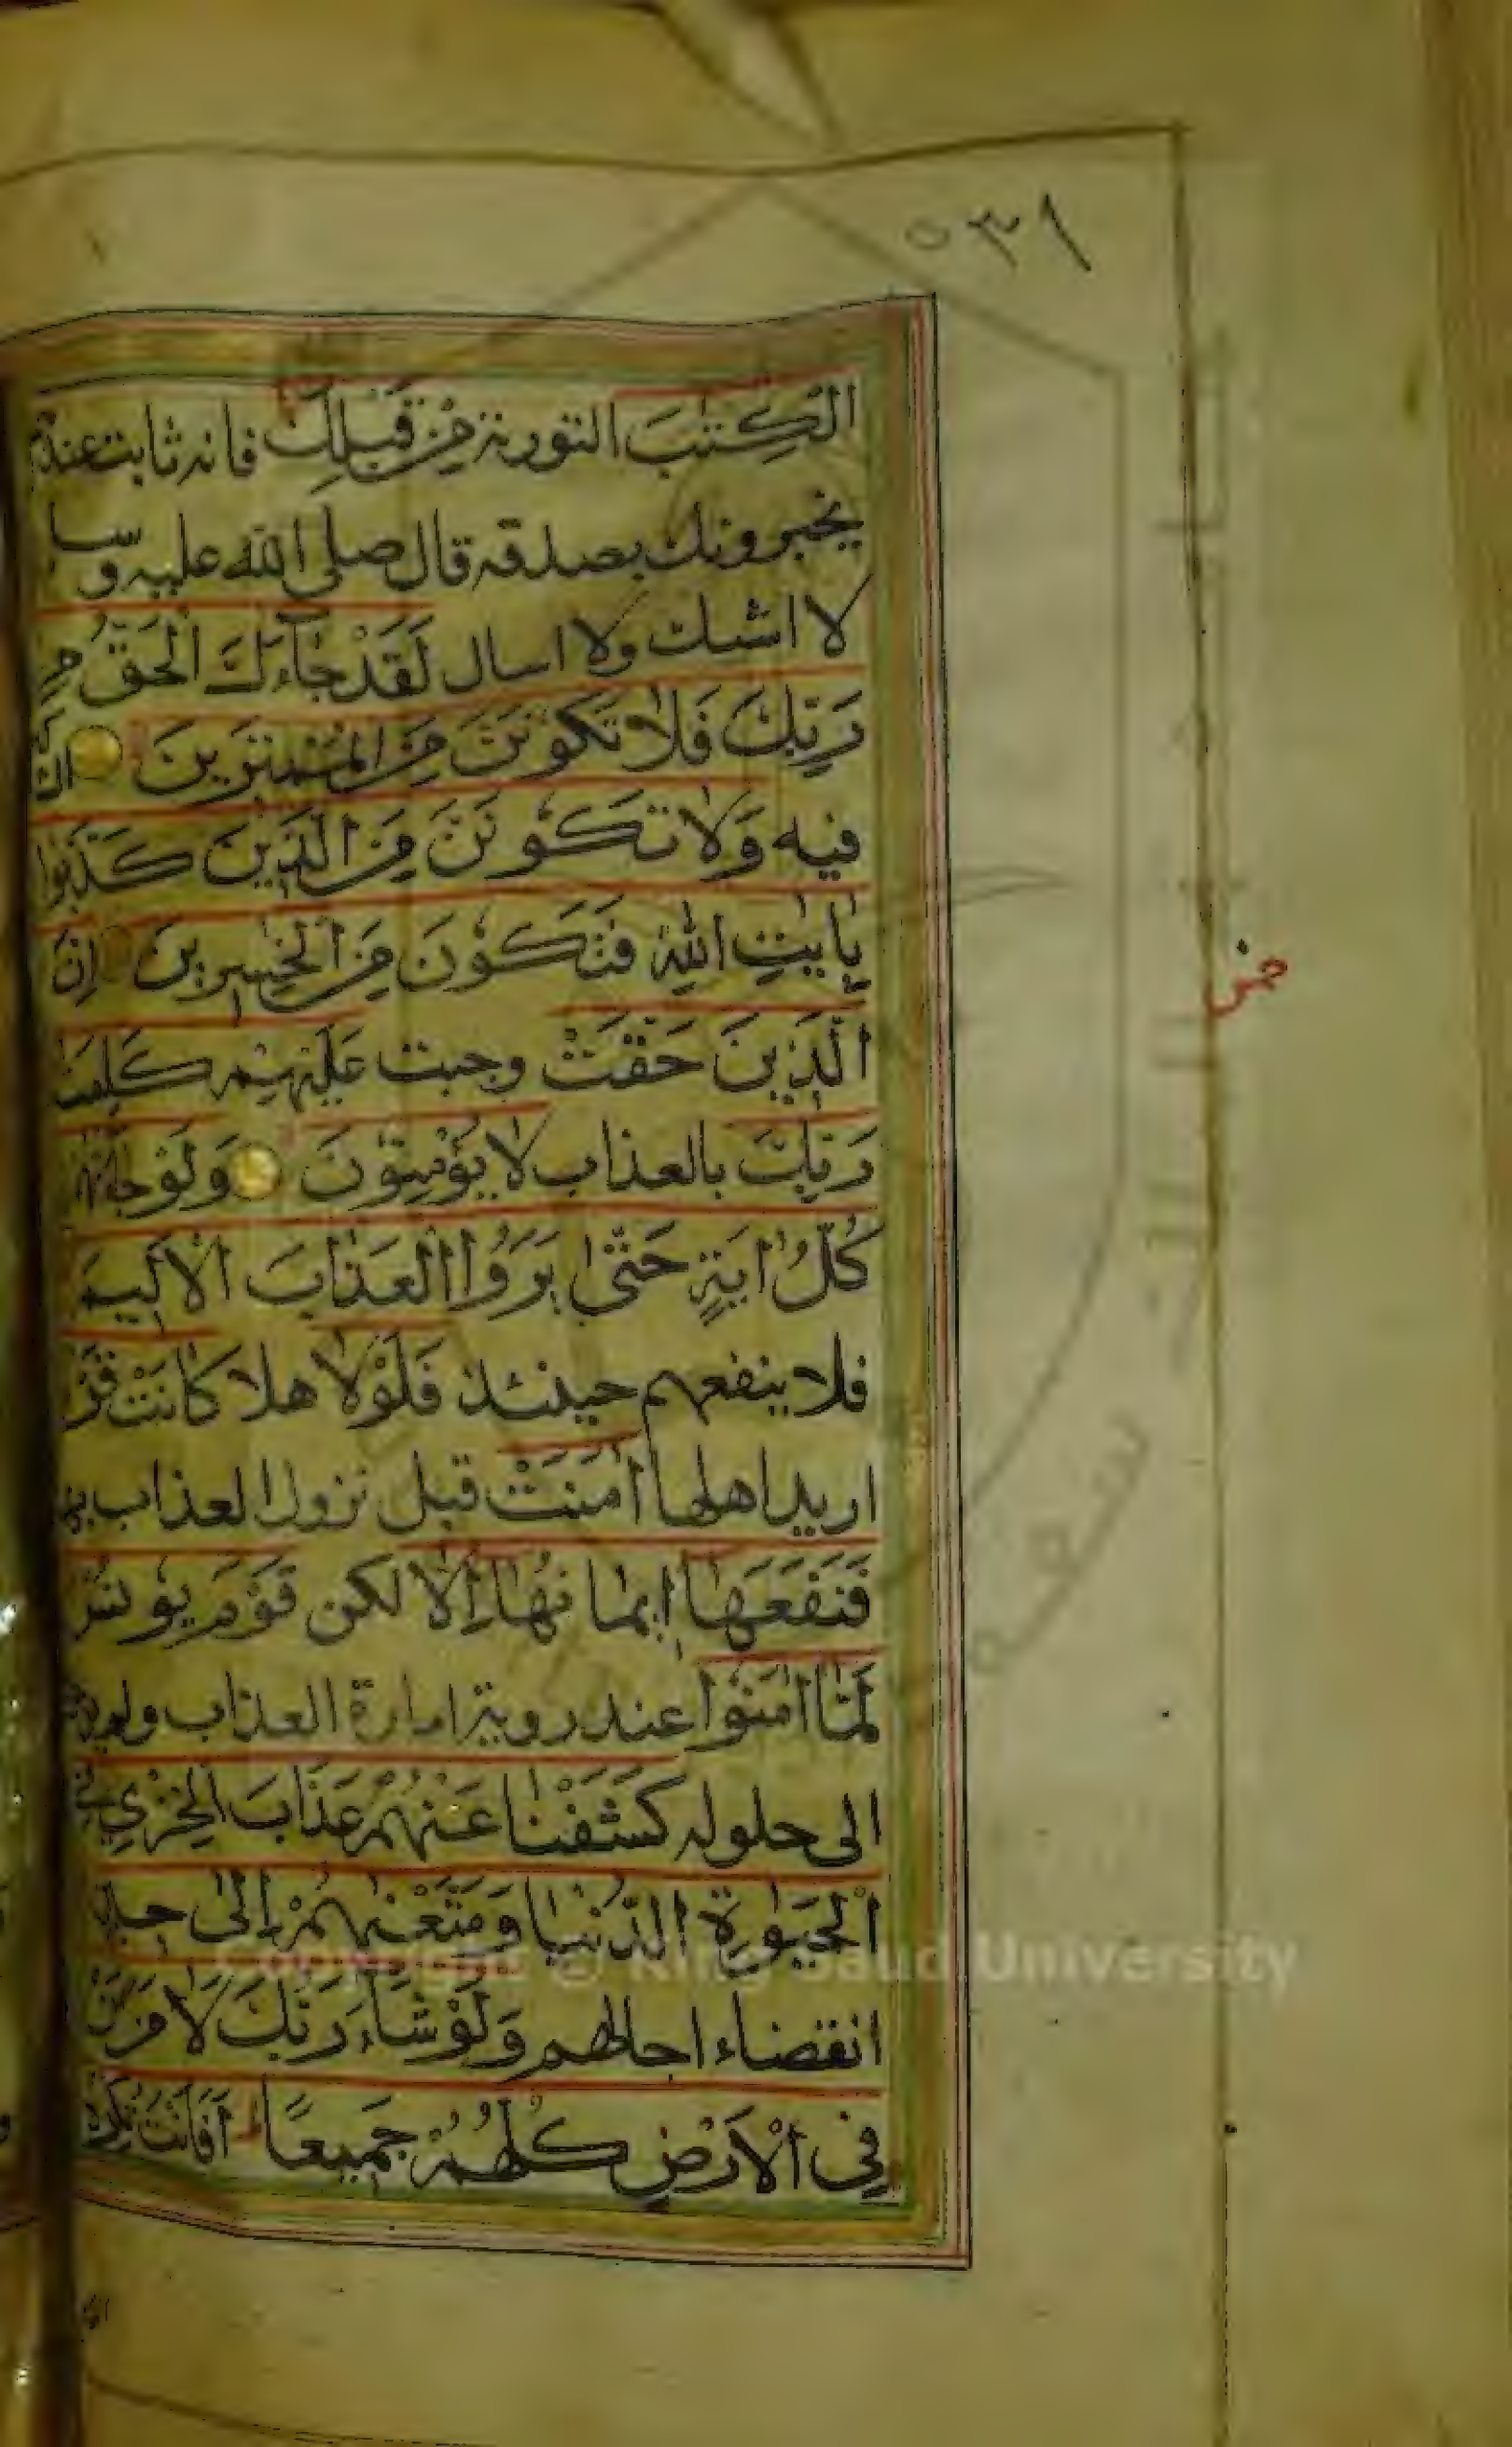 ٥٣١
الْكِتٰبَ التورية مِنْ قَبْلِكَ فانه ثابت عندهم
يخبرونك بصدقه قال صلى الله عليه وسلم
لا اشك ولا اسال لَقَدْ جَآءَكَ الْحَقُّ مِنْ
رَبِّكَ فَلَا تَكُوْنَنَّ مِنَ الْمُمْتَرِينَ
فيه وَلَا تَكُوْنَنَّ مِنَ الَّذِينَ كَذَّبُوا
بِاٰيٰتِ اللّٰهِ فَتَكُوْنَ مِنَ الْخٰسِرِينَ اِنَّ
الَّذِينَ حَقَّتْ وجبت عَلَيْهِمْ كَلِمَتُ
رَبِّكَ بالعذاب لَا يُؤْمِنُوْنَ وَلَوْ جَآءَتْهُمْ
كُلُّ اٰيَةٍ حَتّٰى يَرَوُا الْعَذَابَ الْاَلِيمَ
فلا ينفعهم حينئذ فَلَوْلَا هلا كَانَتْ
اريد اهلها اٰمَنَتْ قبل نزول العذاب بها
فَنَفَعَهَا اِيمَانُهَا اِلَّا لكن قَوْمَ يُونُسَ
لَمَّا اٰمَنُوْا عند روية امارة العذاب ولم
الى حلوله كَشَفْنَا عَنْهُمْ عَذَابَ الْخِزْيِ فِى
الْحَيٰوةِ الدُّنْيَا وَمَتَّعْنٰهُمْ اِلٰى حِينٍ
انقضاء اجالهم وَلَوْ شَآءَ رَبُّكَ لَاٰمَنَ مَنْ
فِى الْاَرْضِ كُلُّهُمْ جَمِيعًا اَفَاَنْتَ تُكْرِهُ
Copyright © King Saud University